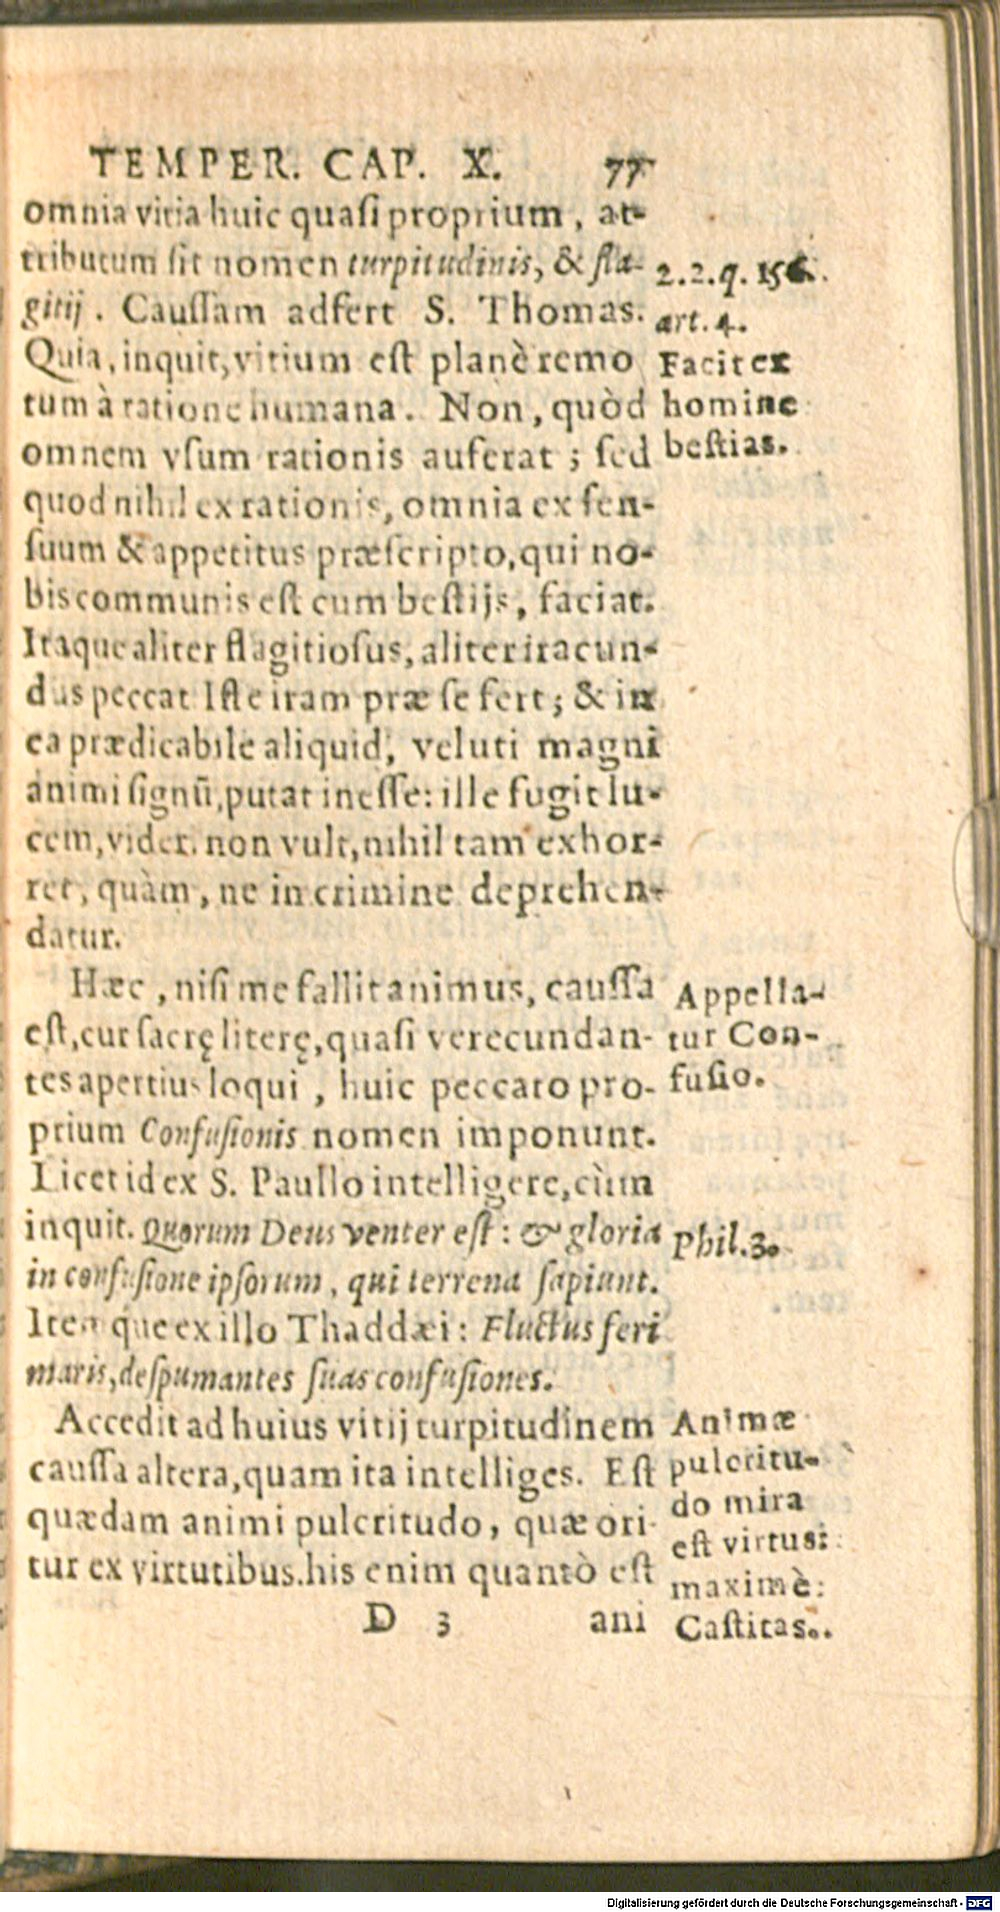 TEMPER. CAP. X. 77
omnia vitia huic quasi proprium, at-
tributum sit nomen turpitudinis, & fla-
gitij. Caussam adfert S. Thomas.
Quia, inquit, vitium est planè remo
tum à ratione humana. Non, quòd
omnem vsum rationis auferat; sed
quod nihil ex rationis, omnia ex sen-
suum & appetitus præscripto, qui no-
bis communis est cum bestijs, faciat.
Itaque aliter flagitiosus, aliter iracun-
dus peccat Iste iram præ se fert; & in
ea prædicabile aliquid, veluti magni
animi signū, putat inesse: ille fugit lu-
cem, videri non vult, nihil tam exhor-
ret, quàm, ne in crimine deprehen-
datur.
Hæc, nisi me fallit animus, caussa
est, cur sacrę literę, quasi verecundan-
tes apertius loqui, huic peccato pro-
prium Confusionis nomen imponunt.
Licet id ex S. Paullo intelligere, cùm
inquit. Quorum Deus venter est: & gloria
in confusione ipsorum, qui terrena sapiunt.
Item que ex illo Thaddæi: Fluctus feri
maris, despumantes suas confusiones.
Accedit ad huius vitij turpitudinem
caussa altera, quam ita intelliges. Est
quædam animi pulcritudo, quæ ori-
tur ex virtutibus. his enim quantò est
D 3 ani
2.2.q. 156.
art. 4.
Facit ex
homine
bestias.
Appella-
tur Con-
fusio.
Phil. 3.
Animæ
pulcritu-
do mira
est virtus:
maximè
Castitas.
Digitalisierung gefördert durch die Deutsche Forschungsgemeinschaft - DFG